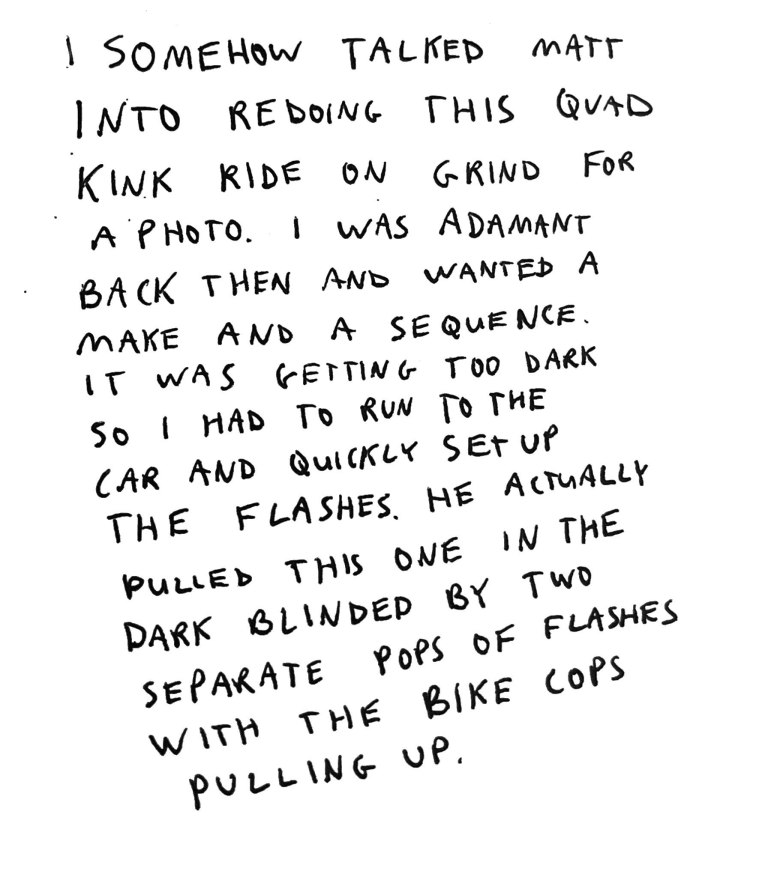 I SOMEHOW TALKED MATT
INTO REDOING THIS QUAD
KINK RIDE ON GRIND FOR
A PHOTO. I WAS ADAMANT
BACK THEN AND WANTED A
MAKE AND A SEQUENCE.
IT WAS GETTING TOO DARK
SO I HAD TO RUN TO THE
CAR AND QUICKLY SET UP
THE FLASHES. HE ACTUALLY
PULLED THIS ONE IN THE
DARK BLINDED BY TWO
SEPARATE POPS OF FLASHES
WITH THE BIKE COPS
PULLING UP.